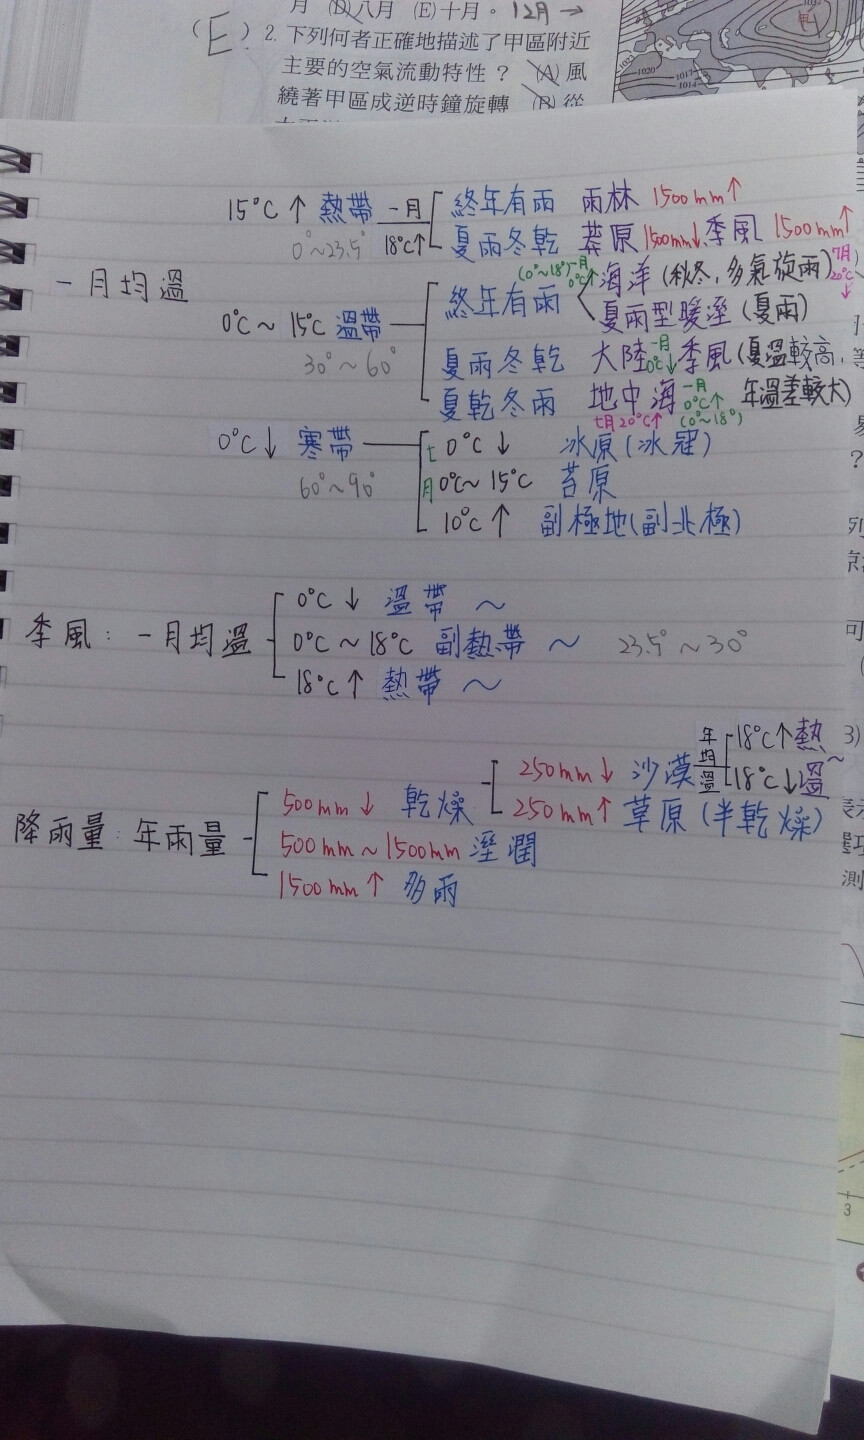 月 (D)八月 (E)十月。12月→
(E) 2. 下列何者正確地描述了甲區附近
主要的空氣流動特性？ (A)風
繞著甲區成逆時鐘旋轉 (B)從
1020 1017 1014
甲
15°C↑ 熱帶 一月 18°C↑ 終年有雨 雨林 1500mm↑
0°~23.5° 夏雨冬乾 莽原 1500mm↓ 季風 1500mm↑
一月均溫
0°C~15°C 溫帶 終年有雨 (0°~18°) 一月 0°C↑ 海洋 (秋冬,多氣旋雨) 7月 20°C↓
夏雨型暖溼 (夏雨)
30°~60° 夏雨冬乾 大陸 一月 0°C↓ 季風 (夏溫較高,
夏乾冬雨 地中海 一月 0°C↑ (0°~18°) 年溫差較大)
七月 20°C↑
0°C↓ 寒帶 七月 0°C↓ 冰原 (冰冠)
60°~90° 0°C~15°C 苔原
10°C↑ 副極地(副北極)
季風: 一月均溫 0°C↓ 溫帶 ~
0°C~18°C 副熱帶 ~ 23.5°~30°
18°C↑ 熱帶 ~
降雨量: 年雨量 500mm↓ 乾燥 250mm↓ 沙漠 年均溫 18°C↑熱~
18°C↓溫
250mm↑ 草原 (半乾燥)
500mm~1500mm 溼潤
1500mm↑ 多雨
等
？
列
可
3)
測
3